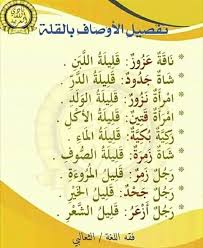 تفصيل الأوصاف بالقلة
* نَاقَةٌ عَزُوزٌ: قَلِيلَةُ اللَّبَنِ .
* شَاةٌ جَدُودٌ: قَلِيلَةُ الدَّرِّ .
* امْرَأَةٌ نَزُورٌ: قَلِيلَةُ الوَلَدِ .
* امْرَأَةٌ قَتِينٌ: قَلِيلَةُ الأَكْلِ .
* رَكِيَّةٌ بَكِيَّةٌ: قَلِيلَةُ المَاءِ .
* شَاةٌ زَمِرَةٌ: قَلِيلَةُ الصُّوفِ .
* رَجُلٌ زَمِرٌ: قَلِيلُ المُرُوءَةِ .
* رَجُلٌ جَحْدٌ: قَلِيلُ الخَيْرِ .
* رَجُلٌ أَزْعَرُ: قَلِيلُ الشَّعْرِ .
فقه اللغة / الثعالبي